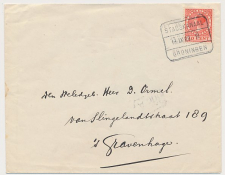 STADSKANAAL
GRONINGEN
Den Weledgel. Heer D. Ormel.
van Slingelandtstraat 189
's Gravenhage.